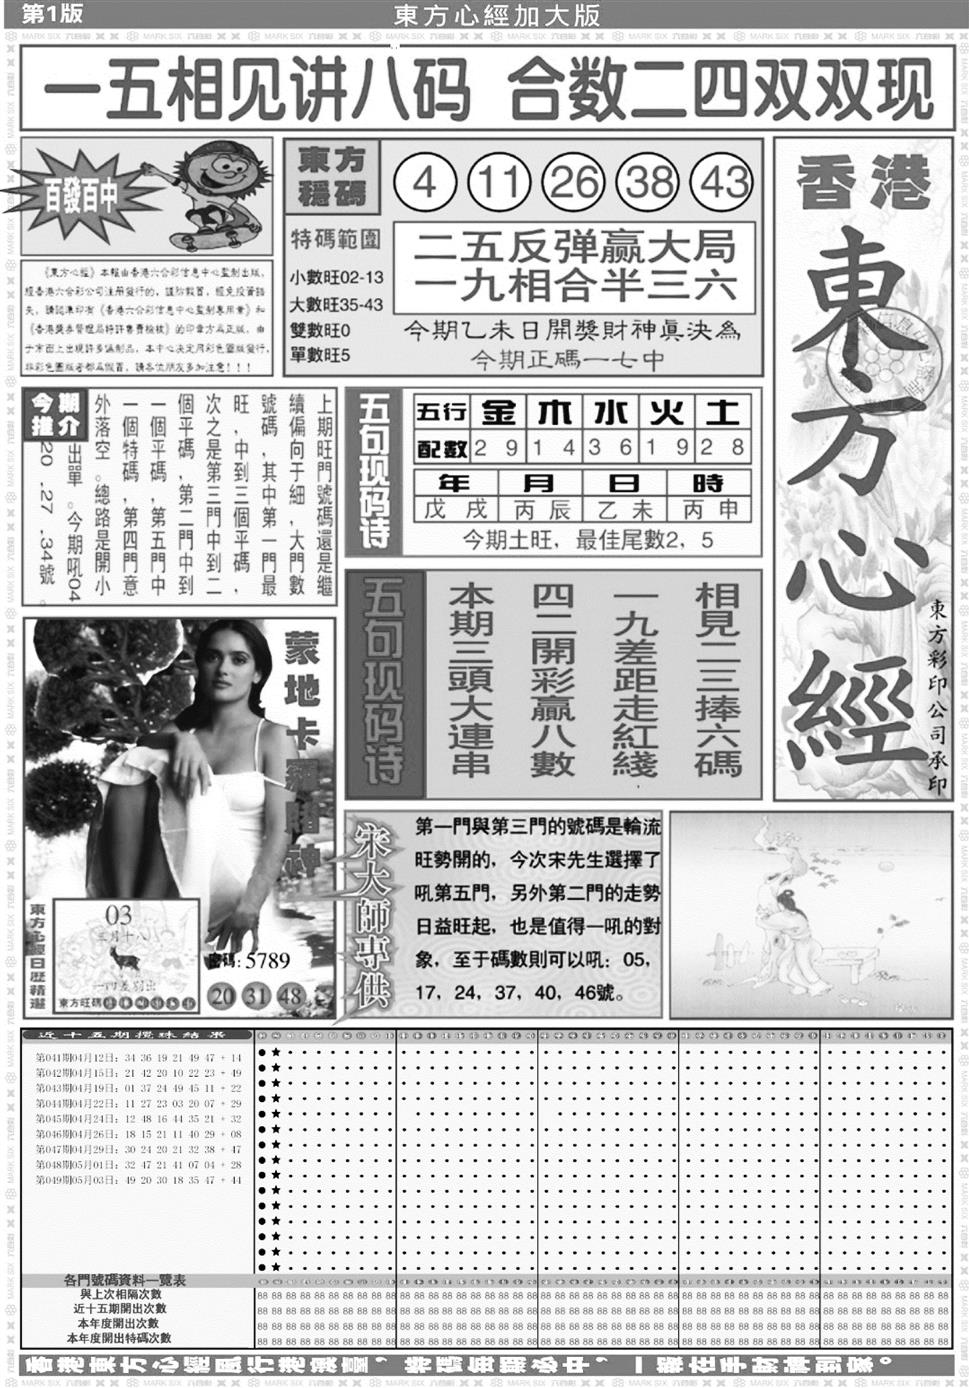 第1版
東方心經加大版
一五相见讲八码 合数二四双双现
百發百中
《東方心經》本報由香港六合彩信息中心監制出版，
經香港六合彩公司注册發行的，謹防假冒，避免投資錯
失，請認準印有《香港六合彩信息中心監制專用章》和
《香港獎券管理局特許售賣檢核》的印章方爲正版，由
于市面上出現許多僞制品，本中心决定用彩色圖版發行，
非彩色圖版者都爲假冒，請各位朋友多加注意！！！
東方
穩碼
4 11 26 38 43
特碼範圍
小數旺02-13
大數旺35-43
雙數旺0
單數旺5
二五反弹赢大局
一九相合半三六
今期乙未日開獎財神真決為
今期正碼一七中
香港
東方心經
東方彩印公司承印
今期
推介
上期旺門號碼還是繼
續偏向于細，大門數
號碼，其中第一門最
旺，中到三個平碼，
次之是第三門中到二
個平碼，第二門中到
一個平碼，第五門中
一個特碼，第四門意
外落空。總路是開小
出單。今期吼04
20，27，34號。
五句现码诗
五行 金 木 水 火 土
配數 2 9 1 4 3 6 1 9 2 8
年 月 日 時
戊戌 丙辰 乙未 丙申
今期土旺，最佳尾數2，5
五句现码诗
相見二三捧六碼
一九差距走紅綫
四二開彩贏八數
本期三頭大連串
蒙地卡羅賭神
東方心經日歷精選
03
三月十八
一四差别出
東方旺碼
密碼：5789
20 31 48
宋大師專供
第一門與第三門的號碼是輪流
旺勢開的，今次宋先生選擇了
吼第五門，另外第二門的走勢
日益旺起，也是值得一吼的對
象，至于碼數則可以吼：05，
17，24，37，40，46號。
近十五期攪珠結果
第041期04月12日：34 36 19 21 49 47 + 14
第042期04月15日：21 42 20 10 22 23 + 49
第043期04月19日：01 37 24 49 45 11 + 22
第044期04月22日：11 27 23 03 20 07 + 29
第045期04月24日：12 48 16 44 35 21 + 32
第046期04月26日：18 15 21 11 40 29 + 08
第047期04月29日：30 24 20 21 32 38 + 47
第048期05月01日：32 47 21 41 07 04 + 28
第049期05月03日：49 20 30 18 35 47 + 44
各門號碼資料一覽表
與上次相隔次數
近十五期開出次數
本年度開出次數
本年度開出特碼次數
香港東方心經風行港澳臺，特碼每期必中，一報在手財神到家。